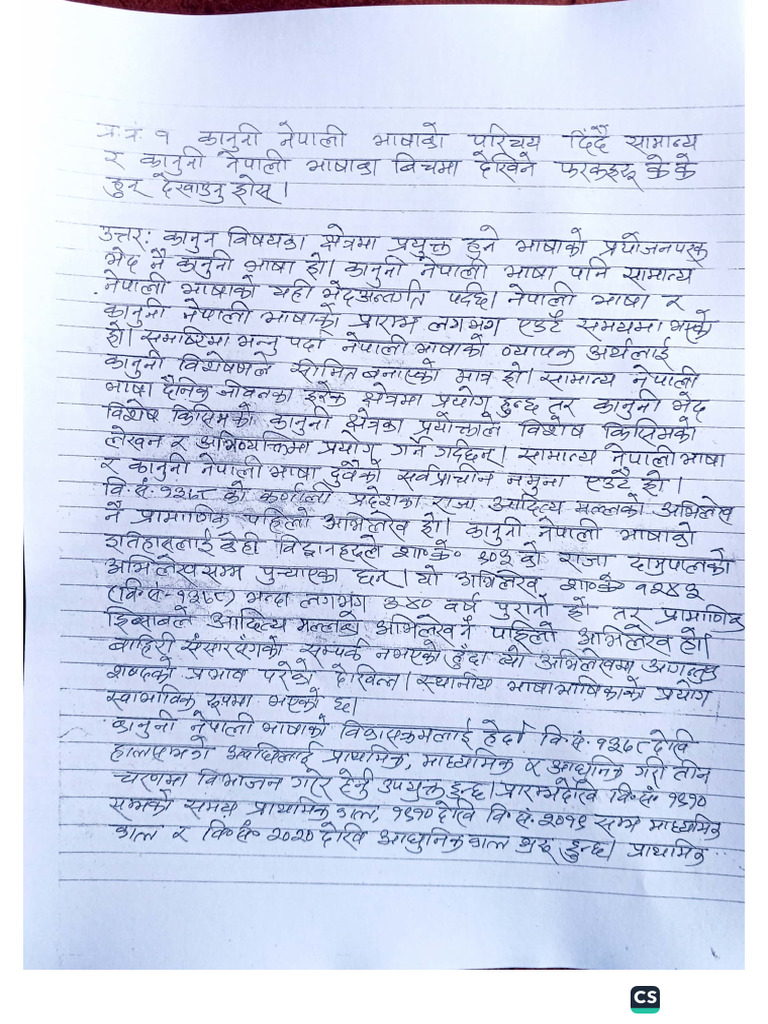 प्र.नं. १ कानुनी नेपाली भाषाको परिचय दिँदै सामान्य
र कानुनी नेपाली भाषाका बिचमा देखिने फरकहरू के के
हुन् देखाउनु होस् ।
उत्तर: कानुन विषयका क्षेत्रमा प्रयुक्त हुने भाषाको प्रयोजनपरक
भेद नै कानुनी भाषा हो। कानुनी नेपाली भाषा पनि सामान्य
नेपाली भाषाको यही भेदअन्तर्गत पर्दछ। नेपाली भाषा र
कानुनी नेपाली भाषाको प्रारम्भ लगभग एउटै समयमा भएको
हो। समष्टिमा भन्नु पर्दा नेपाली भाषाको व्यापक अर्थलाई
कानुनी विशेषणले सीमित बनाएको मात्र हो। सामान्य नेपाली
भाषा दैनिक जीवनका हरेक क्षेत्रमा प्रयोग हुन्छ तर कानुनी भेद
विशेष किसिमको कानुनी क्षेत्रका प्रयोक्ताले विशेष किसिमको
लेखन र अभिव्यक्तिमा प्रयोग गर्ने गर्दछन्। सामान्य नेपाली भाषा
र कानुनी नेपाली भाषा दुवैको सर्वप्राचीन नमुना एउटै हो ।
वि.सं. १३७८ को कर्णाली प्रदेशका राजा आदित्य मल्लको अभिलेख
नै प्रामाणिक पहिलो अभिलेख हो। कानुनी नेपाली भाषाको
इतिहासलाई केही विद्वानहरूले शा०के० ९०३ को राजा दामुपालको
अभिलेखसम्म पुर्‍याएका छन् । यो अभिलेख शा०के १२४३
(वि.सं. १३७८) भन्दा लगभग ३४० वर्ष पुरानो हो तर प्रामाणिक
हिसाबले आदित्य मल्लको अभिलेख नै पहिलो अभिलेख हो।
बाहिरी संसारसँगको सम्पर्क नभएको हुँदा त्यो अभिलेखमा आगन्तुक
शब्दको प्रभाव परेको देखिन्न। स्थानीय भाषाभाषिकाको प्रयोग
स्वाभाविक रूपमा भएको छ।
कानुनी नेपाली भाषाको विकासक्रमलाई हेर्दा वि.सं. १३७८ देखि
हालसम्मको अवधिलाई प्राथमिक, माध्यमिक र आधुनिक गरी तीन
चरणमा विभाजन गरेर हेर्नु उपयुक्त हुन्छ। प्रारम्भदेखि वि.सं. १९१०
सम्मको समय प्राथमिक काल, १९१० देखि वि.सं. २०१९ सम्म माध्यमिक
काल र वि०सं० २०२० देखि आधुनिक काल शुरू हुन्छ। प्राथमिक
CS